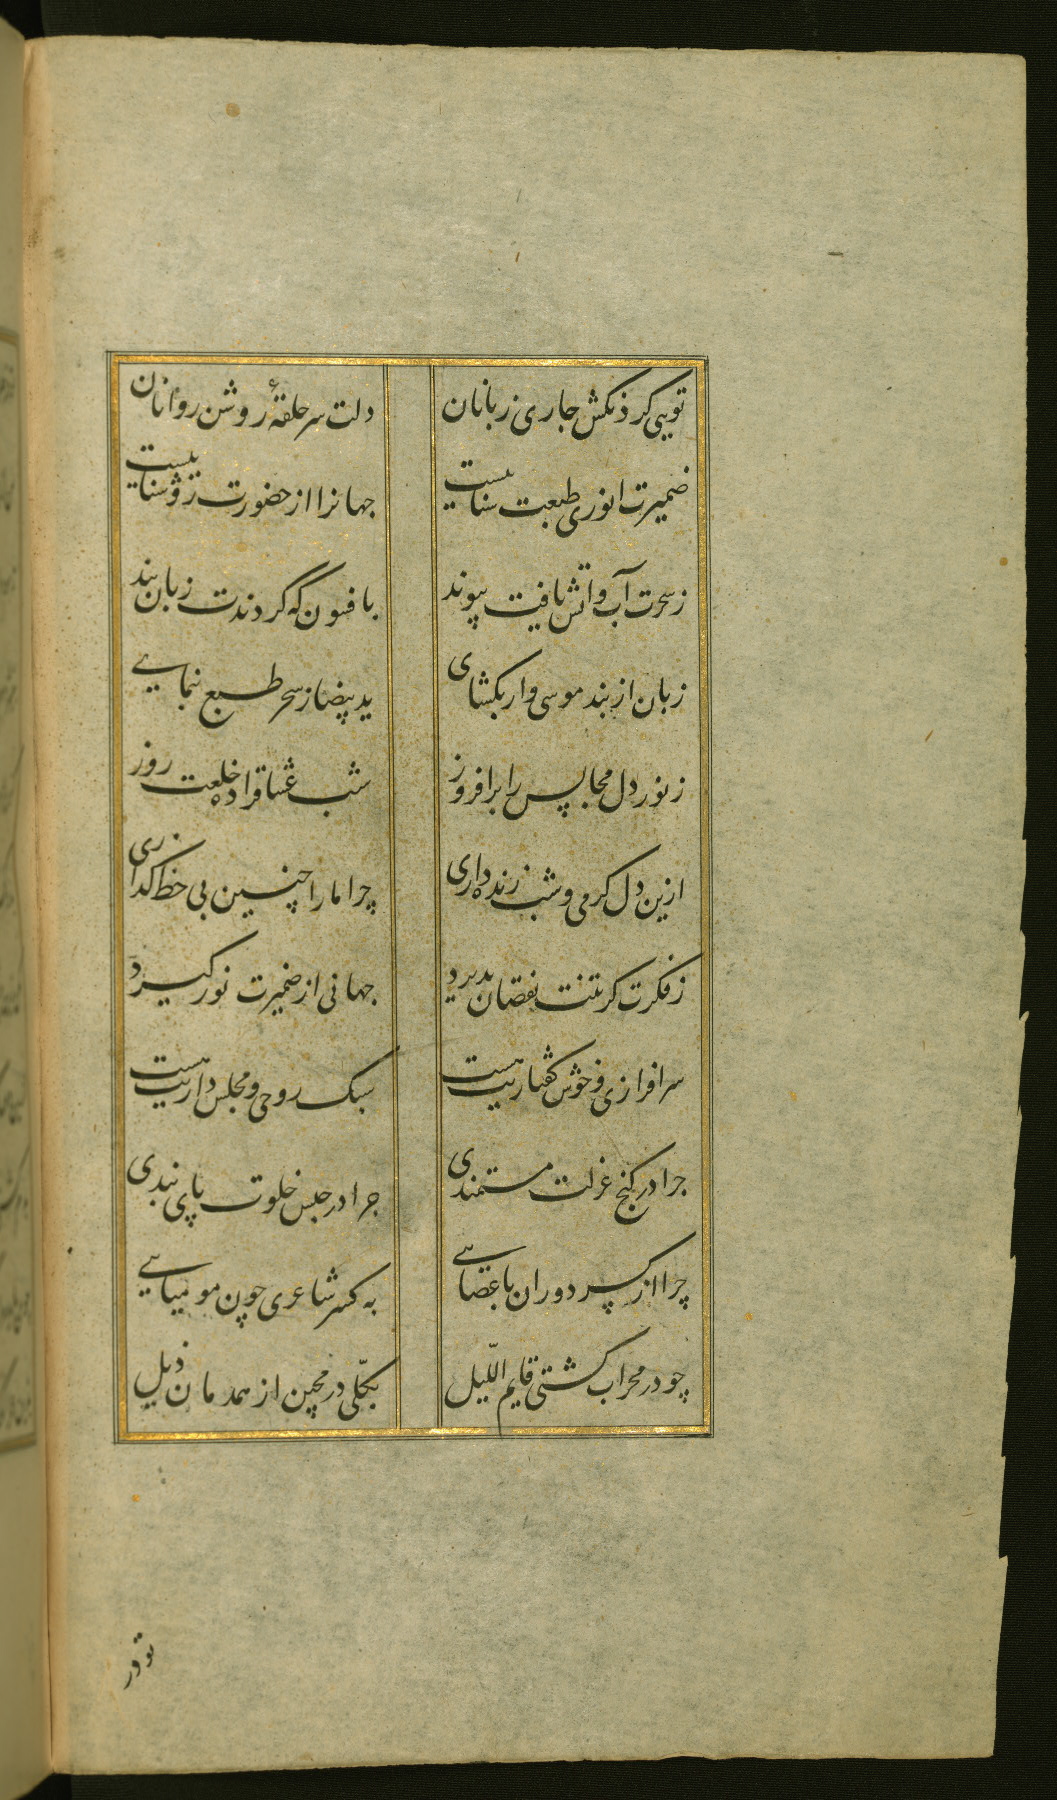 تویی کر ذنکش جاری زبانان
دلت سر حلقهٔ روشن روانان
ضمیرت انوری طبعت سناییست
جهانرا از حضورت روشناییست
ز سحرت آب و آتش یافت پیوند
بافسون که کردندت زبان بند
زبان از بند موسی وار بکشای
ید بیضا ز سحر طبع بنمایی
ز نور دل مجالس را برافروز
شب عشاق را ده خلعت روز
ازین دل کرمی و شب زنده داری
چرا ما را چنین بی حظ کذاری
ز فکرت کر تنت نقصان پدیرد
جهانی از ضمیرت نور کیرد
سرافرازی و خوش کفتاریت هست
سبک روحی و مجلس داریت هست
چرا در کنج عزلت مستمندی
چرا در حبس خلوت پای بندی
چرا از کسر دوران باعصایی
به کسر شاعری چون مومیایی
چو در محراب کشتی قایم اللّیل
بکلّی در مچین از همدمان ذیل
تو در